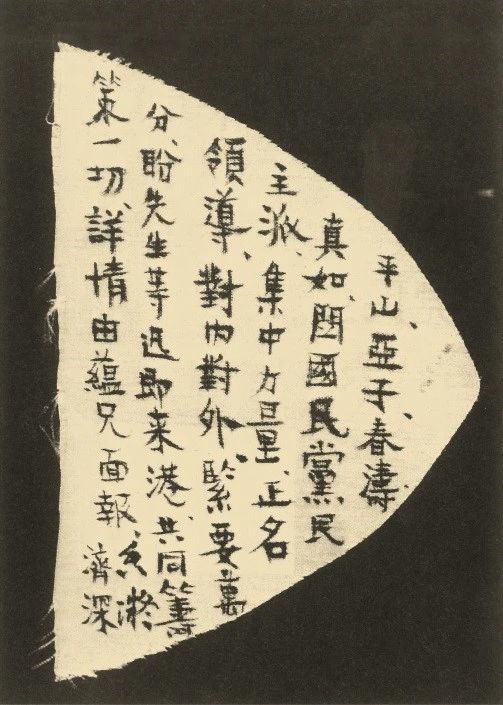 平山、亞子、春濤、
真如、閱國民黨民
主派、集中力量、正名
領導、對内對外、緊要萬
分、盼先生等迅即来港、共同籌
策一切、詳情由蘊兄面報、
香凝
濟深